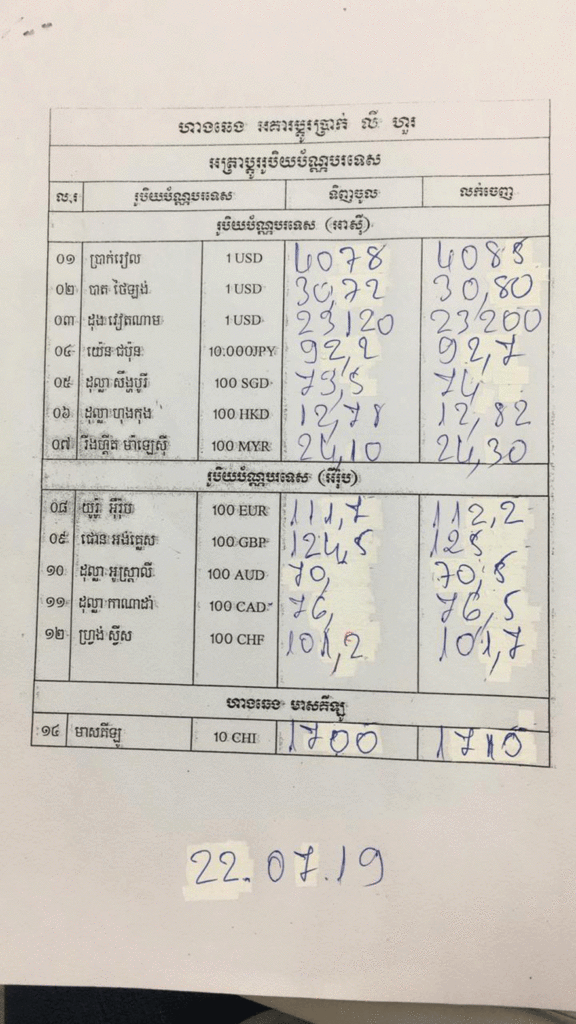 ហាងឆេង អគារប្តូរប្រាក់ លី ហួរ
អត្រាប្តូររូបិយប័ណ្ណបរទេស
ល.រ រូបិយប័ណ្ណបរទេស ទិញចូល លក់ចេញ
រូបិយប័ណ្ណបរទេស (អាស៊ី)
០១ ប្រាក់រៀល 1 USD 4078 4085
០២ បាត ថៃឡង់ 1 USD 30,72 30,80
០៣ ដុង វៀតណាម 1 USD 23120 23200
០៤ យ៉េន ជប៉ុន 10.000JPY 92,2 92,7
០៥ ដុល្លា សឹង្ហបូរី 100 SGD 73,5 74
០៦ ដុល្លា ហុងកុង 100 HKD 12,78 12,82
០៧ រីងហ្គីត ម៉ាឡេស៊ី 100 MYR 24,10 24,30
រូបិយប័ណ្ណបរទេស (អឺរ៉ុប)
០៨ យូរ៉ូ អ៊ឺរ៉ុប 100 EUR 111,7 112,2
០៩ ផោន អង់គ្លេស 100 GBP 124,5 125
១០ ដុល្លា អូស្ត្រាលី 100 AUD 70, 70,5
១១ ដុល្លា កាណាដា 100 CAD 76, 76,5
១២ ហ្វ្រង់ ស្វីស 100 CHF 101,2 101,7
ហាងឆេង មាសគីឡូ
១៤ មាសគីឡូ 10 CHI 1700 1710
22.07.19